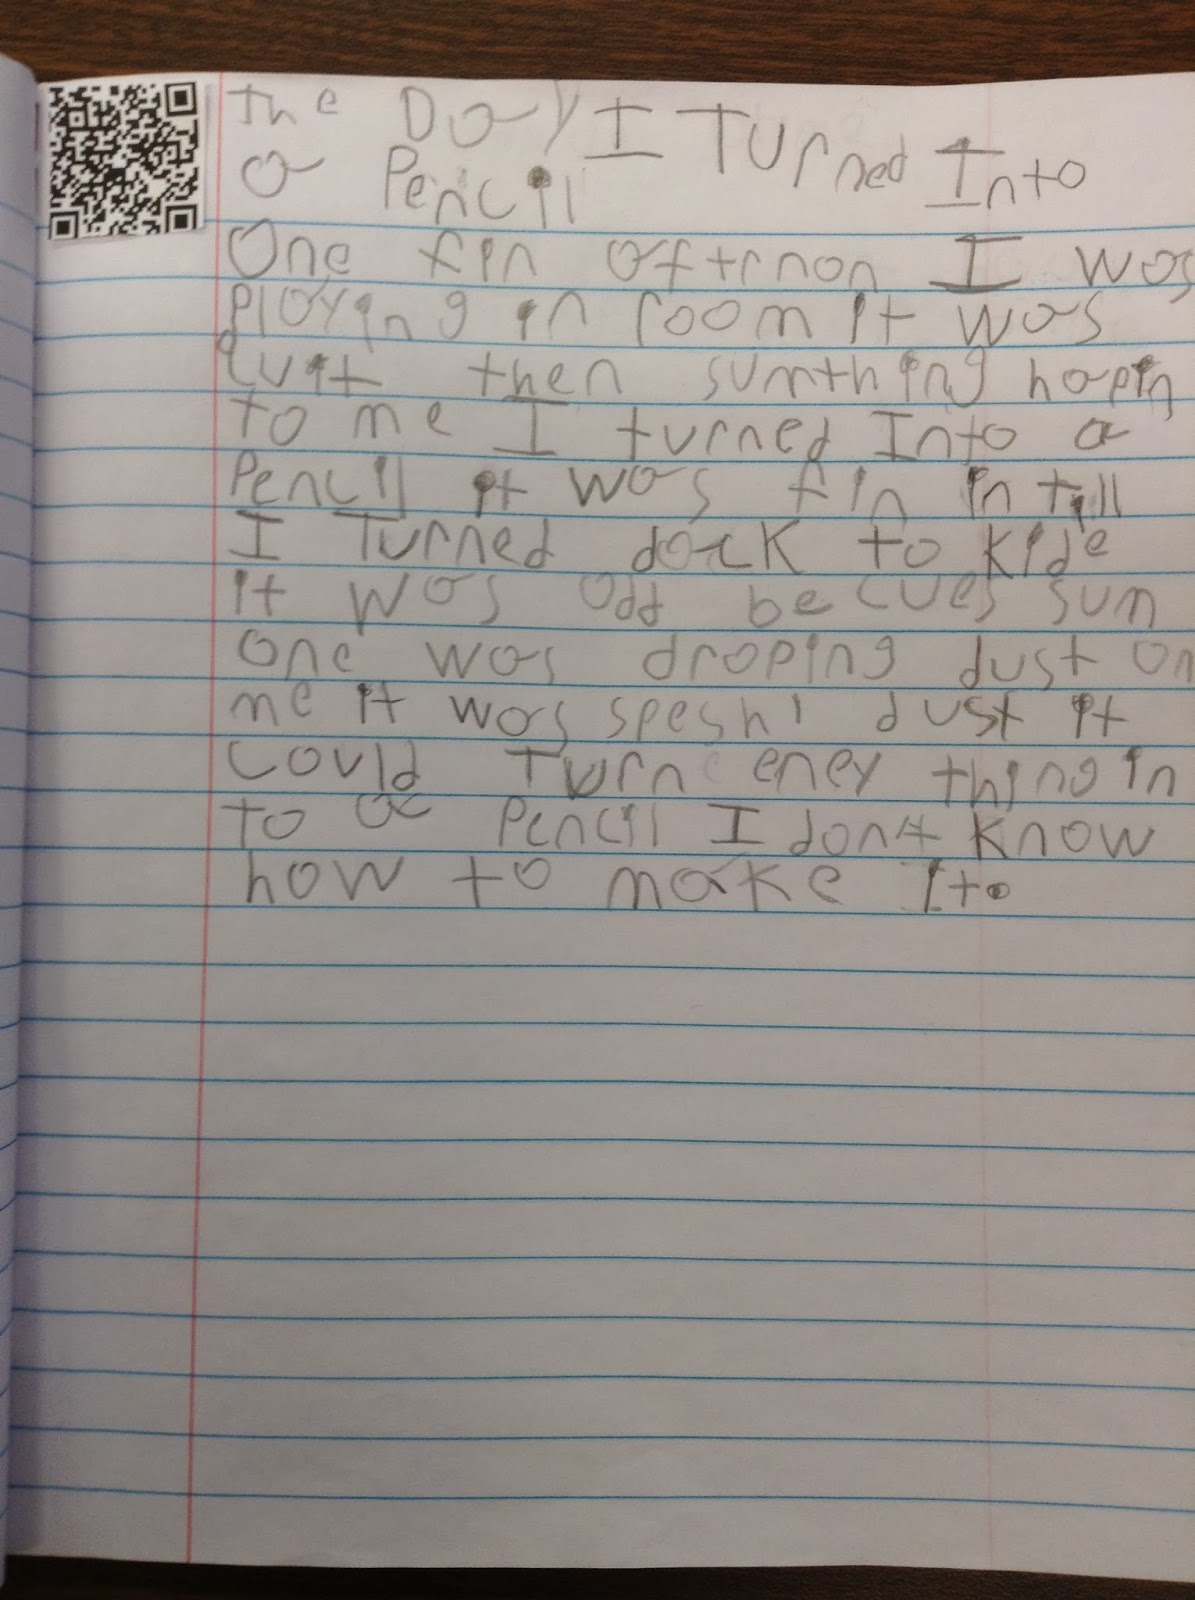 The Day I Turned Into
a Pencil
One fin aftrnon I was
playing in room it was
quit then sumthing hapin
to me I turned Into a
Pencil it was fin in till
I Turned dack to kide
it was odd be cues sum
one was droping dust on
me it was speshl dust it
could Turn eney thing in
to a Pencil I dont know
how to make It.